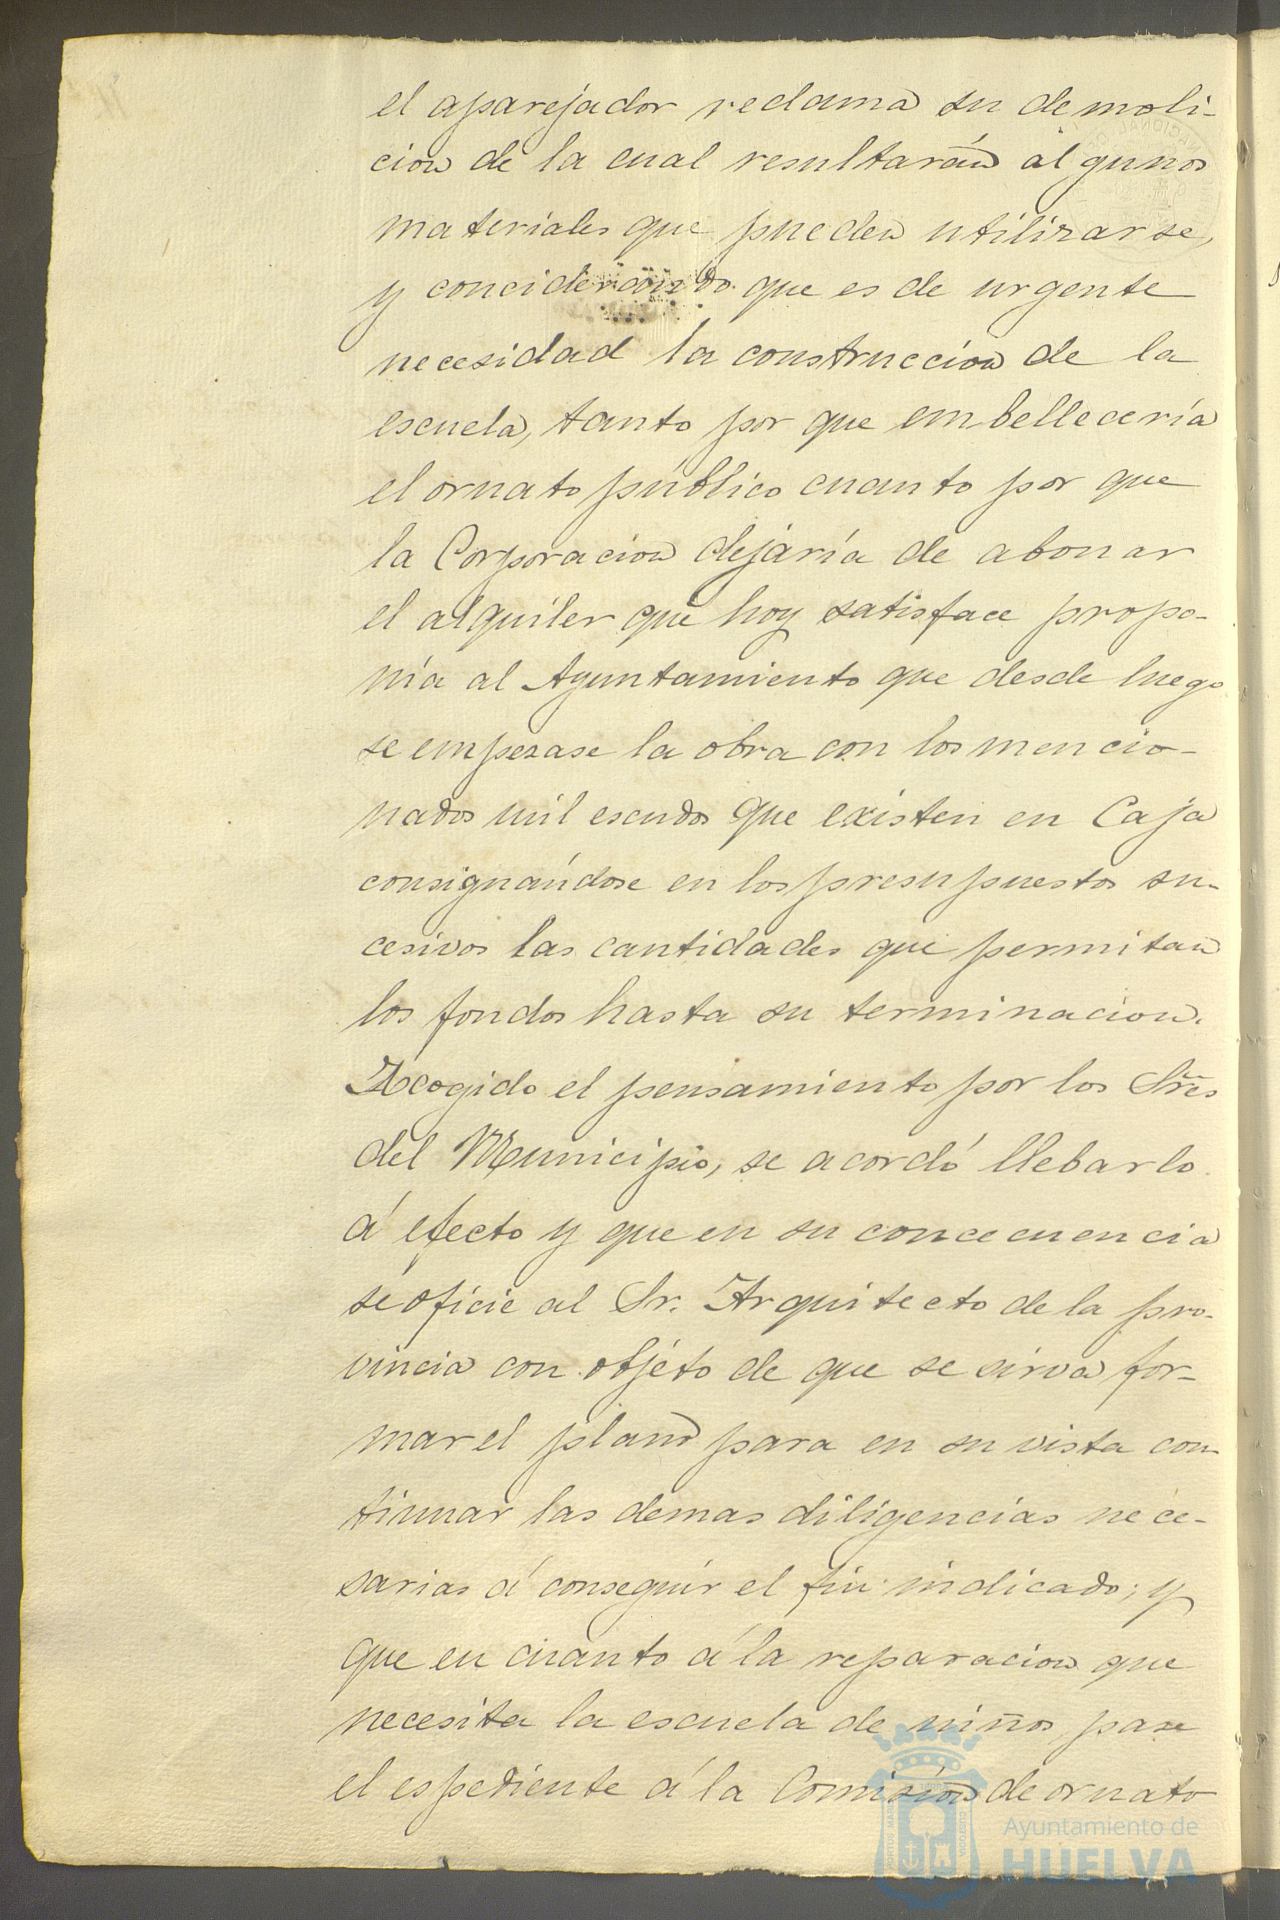 el aparejador reclama su demoli-
cion de la cual resultarán algunos
materiales que pueden utilizarse,
y conciderando que es de urgente
necesidad la construccion de la
escuela, tanto por que embellecería
el ornato público cuanto por que
la Corporacion dejaría de abonar
el alquiler que hoy satisface propo-
nía al Ayuntamiento que desde luego
se empezase la obra con los mencio-
nados mil escudos que existen en Caja
consignándose en los presupuestos su-
cesivos las cantidades que permitan
los fondos hasta su terminacion.
Acogido el pensamiento por los Sres
del Municipio, se acordó llebarlo
á efecto y que en su concecuencia
se oficie al Sr. Arquitecto de la pro-
vincia con objeto de que se sirva for-
mar el plano para en su vista con-
tinuar las demas diligencias nece-
sarias á conseguir el fin indicado; y
que en cuanto á la reparacion que
necesita la escuela de niños, pase
el espediente á la Comisión de ornato
Ayuntamiento de
HUELVA